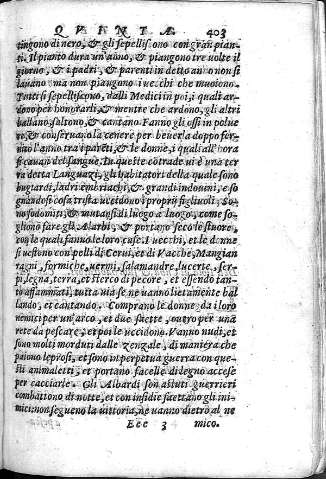 QVINTÆ 403
tingono di nero, & gli sepelliscono con gran pian-
ti. Il pianto dura un'anno, & piangono tre uolte il
giorno, & i padri, & parenti in detto anno non si
lauano ma non piangono i uecchi che muoiono.
sepelliscono, dalli Medici in poi, i quali ar-
dono per honorarli, & mentre che ardono, gli altri
ballano, saltono, & cantano. Fanno gli ossi in polue
re, & conseruano la cenere per beuerla doppo for-
nito l'anno tra i parēti, & le donne, i quali all'hora
si cauan del sangue. In queste cōtrade ui è una ter
ra detta Languazi, gli habitatori della quale sono
bugiardi, ladri, embriachi, & grandi indouini, e so
gnandosi cosa trista uccidono i proprij figliuoli. So
no sodomiti, & mutansi di luogo a luogo, come so-
gliono fare gli Alarbi, & portano seco le stuore,
con le quali fanno le lor case. I uecchi, et le donne
si uestono con pelli di Cerui, et di Vacche, Mangian
ragni, formiche, uermi, salamandre, lucerte, ser-
pi, legna, terra, et sterco di pecore, et essendo tan-
to affammati, tutta uia se ne uanno lietamente bal
lando, et cantando. Comprano le donne da i loro
nemici per un'arco, et due saette, ouero per una
rete da pescare, et poi le uccidono. Vanno nudi, et
sono molti morduti dalle zenzale, di maniera che
paiono leprosi, et sono in perpetua guerra con que-
sti animaletti, et portano facelle di legno accese
per cacciarle. Gli Albardi son astuti guerrieri
combattono di notte, et con insidie saettano gli ini-
mici non seguono la uittoria, ne uanno dietro al ne
Eee 3 mico.